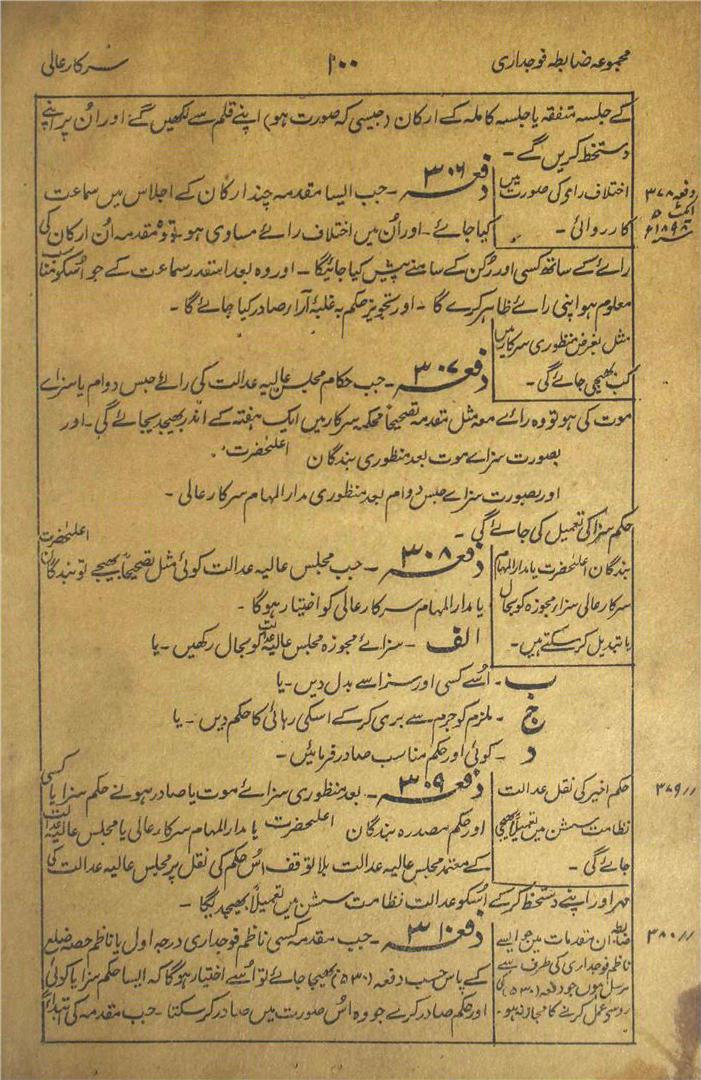 مجموعہ ضابطہ فوجداری
۱۰۰
سرکار عالی
کے جلسہ متفقہ یا جلسہ کاملہ کے ارکان (جیسی کہ صورت ہو) اپنے قلم سے لکھیں گے اور اُن پر اپنے
دستخط کریں گے۔
دفعہ ۳۷۸
ایکٹ ۵
۱۸۹۸ء
اختلاف رای کی صورت میں
کارروائی۔
دفعہ ۳۰۶۔ جب ایسا مقدمہ چند ارکان کے اجلاس میں سماعت
کیا جائے۔ اور اُن میں اختلاف رائے مساوی ہو تو وہ مقدمہ اُن ارکان کی
رائے کے ساتھ کسی اور رُکن کے سامنے پیش کیا جائیگا۔ اور وہ بعد استقدر سماعت کے جو اُسکو مناسب
معلوم ہو اپنی رائے ظاہر کرے گا۔ اور تجویز حکم بہ غلبۂ آرا صادر کیا جائے گا۔
مثل بغرض منظوری سرکار میں
کب بھیجی جائے گی۔
دفعہ ۳۰۷۔ جب حکام مجلس عالیہ عدالت کی رائے حبس دوام یا سزاے
موت کی ہو تو وہ رائے معہ مثل مقدمہ تصحیحاً محکمہ سرکار میں ایک ہفتہ کے اندر بھیجد یجائے گی۔ اور
بصورت سزاے موت بعد منظوری بندگان اعلیٰحضرت
اور بصورت سزاے حبس دوام بعد منظوری مدار المہام سرکار عالی۔
حکم سزا کی تعمیل کی جائے گی۔
بندگان اعلیٰحضرت یا مدار المہام
سرکار عالی سزاء مجوزہ کو بحال
یا تبدیل کر سکتے ہیں۔
دفعہ ۳۰۸۔ جب مجلس عالیہ عدالت کوئی مثل تصحیحاً بھیجے تو بندگان اعلیٰحضرت
یا مدار المہام سرکار عالی کو اختیار ہوگا۔
الف۔ سزائے مجوزہ مجلس عالیہ عدالت کو بحال رکھیں۔ یا
ب۔ اُسے کسی اور سزا سے بدل دیں۔ یا
ج۔ ملزم کو جرم سے بری کر کے اسکی رہائی کا حکم دیں۔ یا
د۔ کوئی اور حکم مناسب صادر فرمائیں۔
// ۳۷۹
حکم اخیر کی نقل عدالت
نظامت سشن میں تعمیلاً بھیجی
جائے گی۔
دفعہ ۳۰۹۔ بعد منظوری سزائے موت یا صادر ہونے حکم سزا یا کسی
اور حکم مصدرہ بندگان اعلیٰحضرت یا مدار المہام سرکار عالی یا مجلس عالیہ عدالت
کے معتمد مجلس عالیہ عدالت بلا توقف اُس حکم کی نقل پر مجلس عالیہ عدالت کی
مہر اور اپنے دستخط کر کے اُسکو عدالت نظامت سشن میں تعمیلاً بھیجدیگا۔
// ۳۸۰
ضابطہ ان مقدمات میں جو ایسے
ناظم فوجداری کی طرف سے
مرسل ہوں جو دفعہ (۵۳۰) کی
رو سے عمل کرنے کا مجاز نہ ہو۔
دفعہ ۳۱۰۔ جب مقدمہ کسی ناظم فوجداری درجہ اول یا ناظم حصہ ضلع
کے پاس حسب دفعہ (۵۳۰) بھیجا جائے تو اُسے اختیار ہوگا کہ ایسا حکم سزا یا کوئی
اور حکم صادر کرے جو وہ اُس صورت میں صادر کر سکتا۔ جب مقدمہ کی ابتداءً